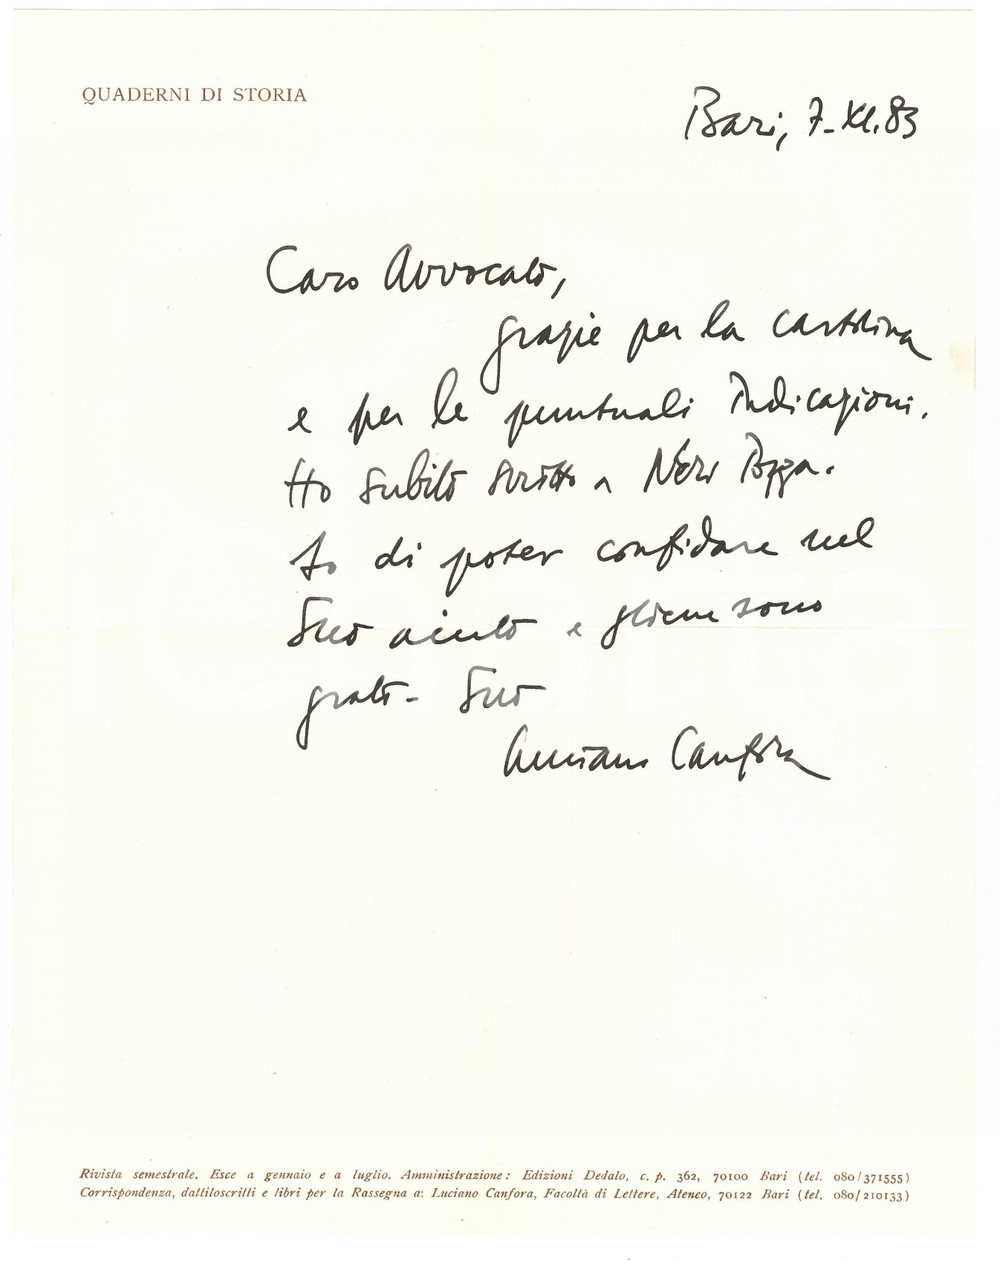 QUADERNI DI STORIA
Bari, 7-XI.83
Caro Avvocato,
grazie per la cartolina
e per le puntuali indicazioni.
Ho subito scritto a Neri Pozza.
So di poter confidare nel
Suo aiuto e gliene sono
grato - Suo
Luciano Canfora
Rivista semestrale. Esce a gennaio e a luglio. Amministrazione: Edizioni Dedalo, c. p. 362, 70100 Bari (tel. 080/371555)
Corrispondenza, dattiloscritti e libri per la Rassegna a: Luciano Canfora, Facoltà di Lettere, Ateneo, 70122 Bari (tel. 080/210133)